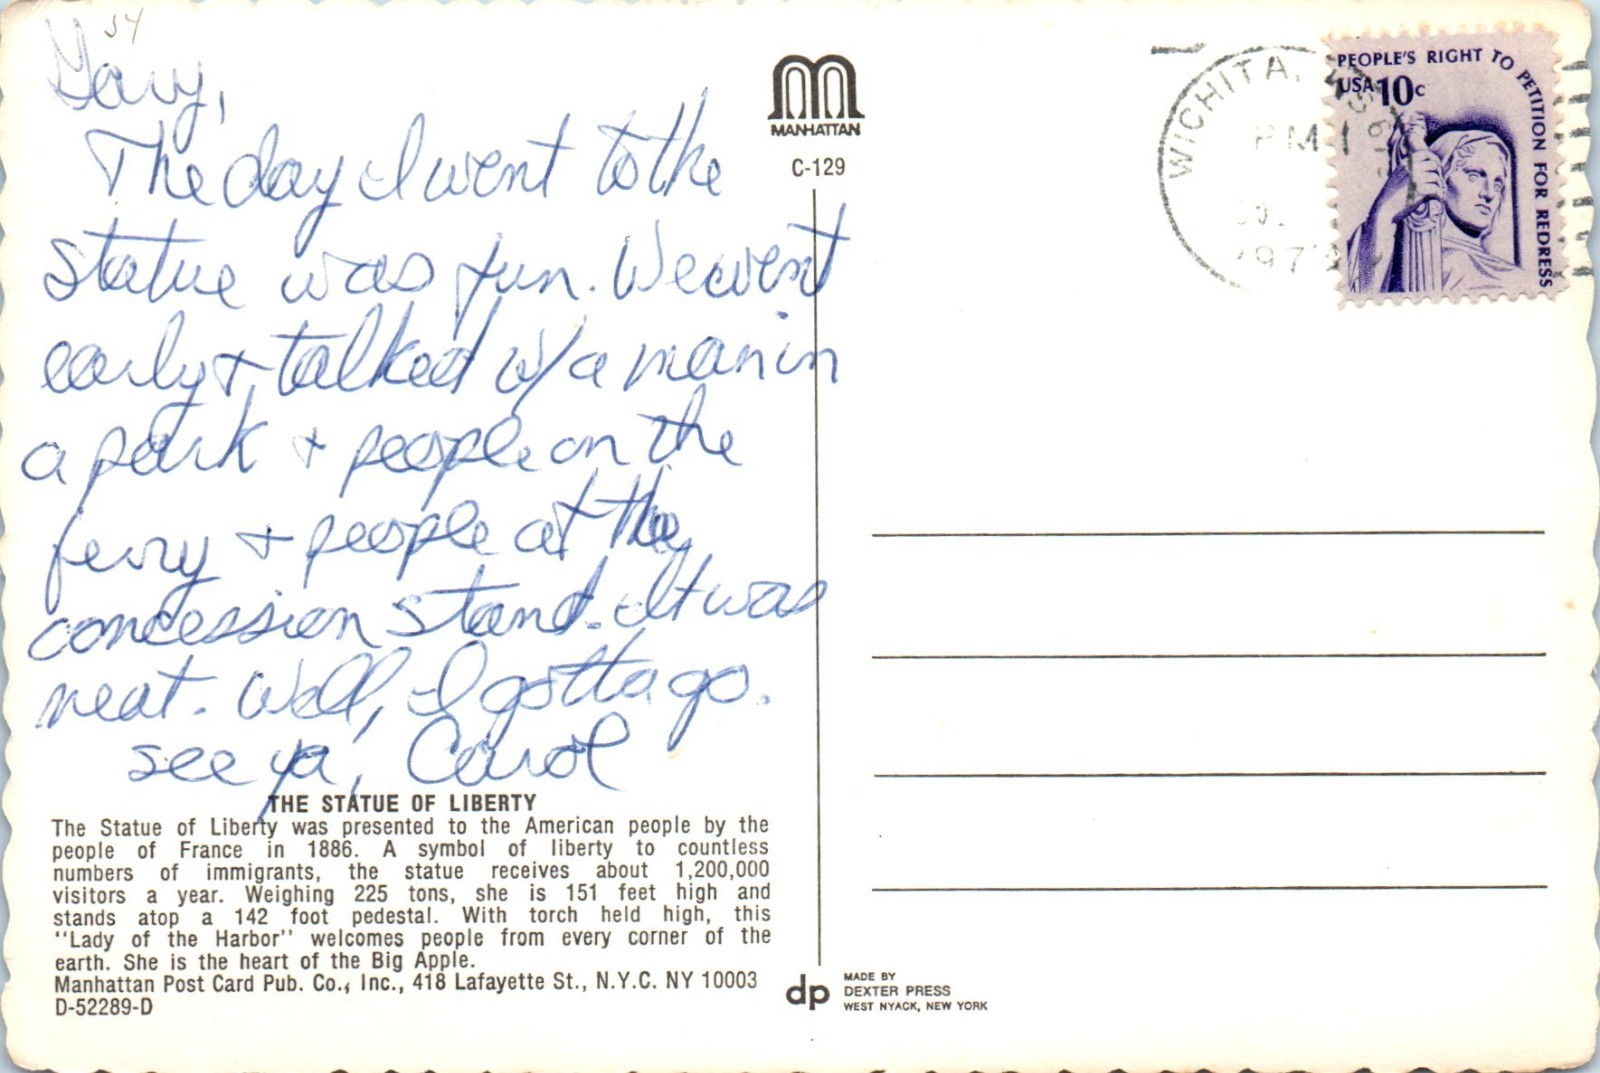 34
Gary,
The day I went to the
statue was fun. We went
early & talked w/a man in
a park & people on the
ferry & people at the
concession stand. It was
neat. Well, I gotta go.
see ya, Carol
THE STATUE OF LIBERTY
The Statue of Liberty was presented to the American people by the
people of France in 1886. A symbol of liberty to countless
numbers of immigrants, the statue receives about 1,200,000
visitors a year. Weighing 225 tons, she is 151 feet high and
stands atop a 142 foot pedestal. With torch held high, this
"Lady of the Harbor" welcomes people from every corner of the
earth. She is the heart of the Big Apple.
Manhattan Post Card Pub. Co., Inc., 418 Lafayette St., N.Y.C. NY 10003
D-52289-D
MANHATTAN
C-129
dp
MADE BY
DEXTER PRESS
WEST NYACK, NEW YORK
WICHITA, KS
PM
PEOPLE'S RIGHT TO PETITION FOR REDRESS
USA 10c